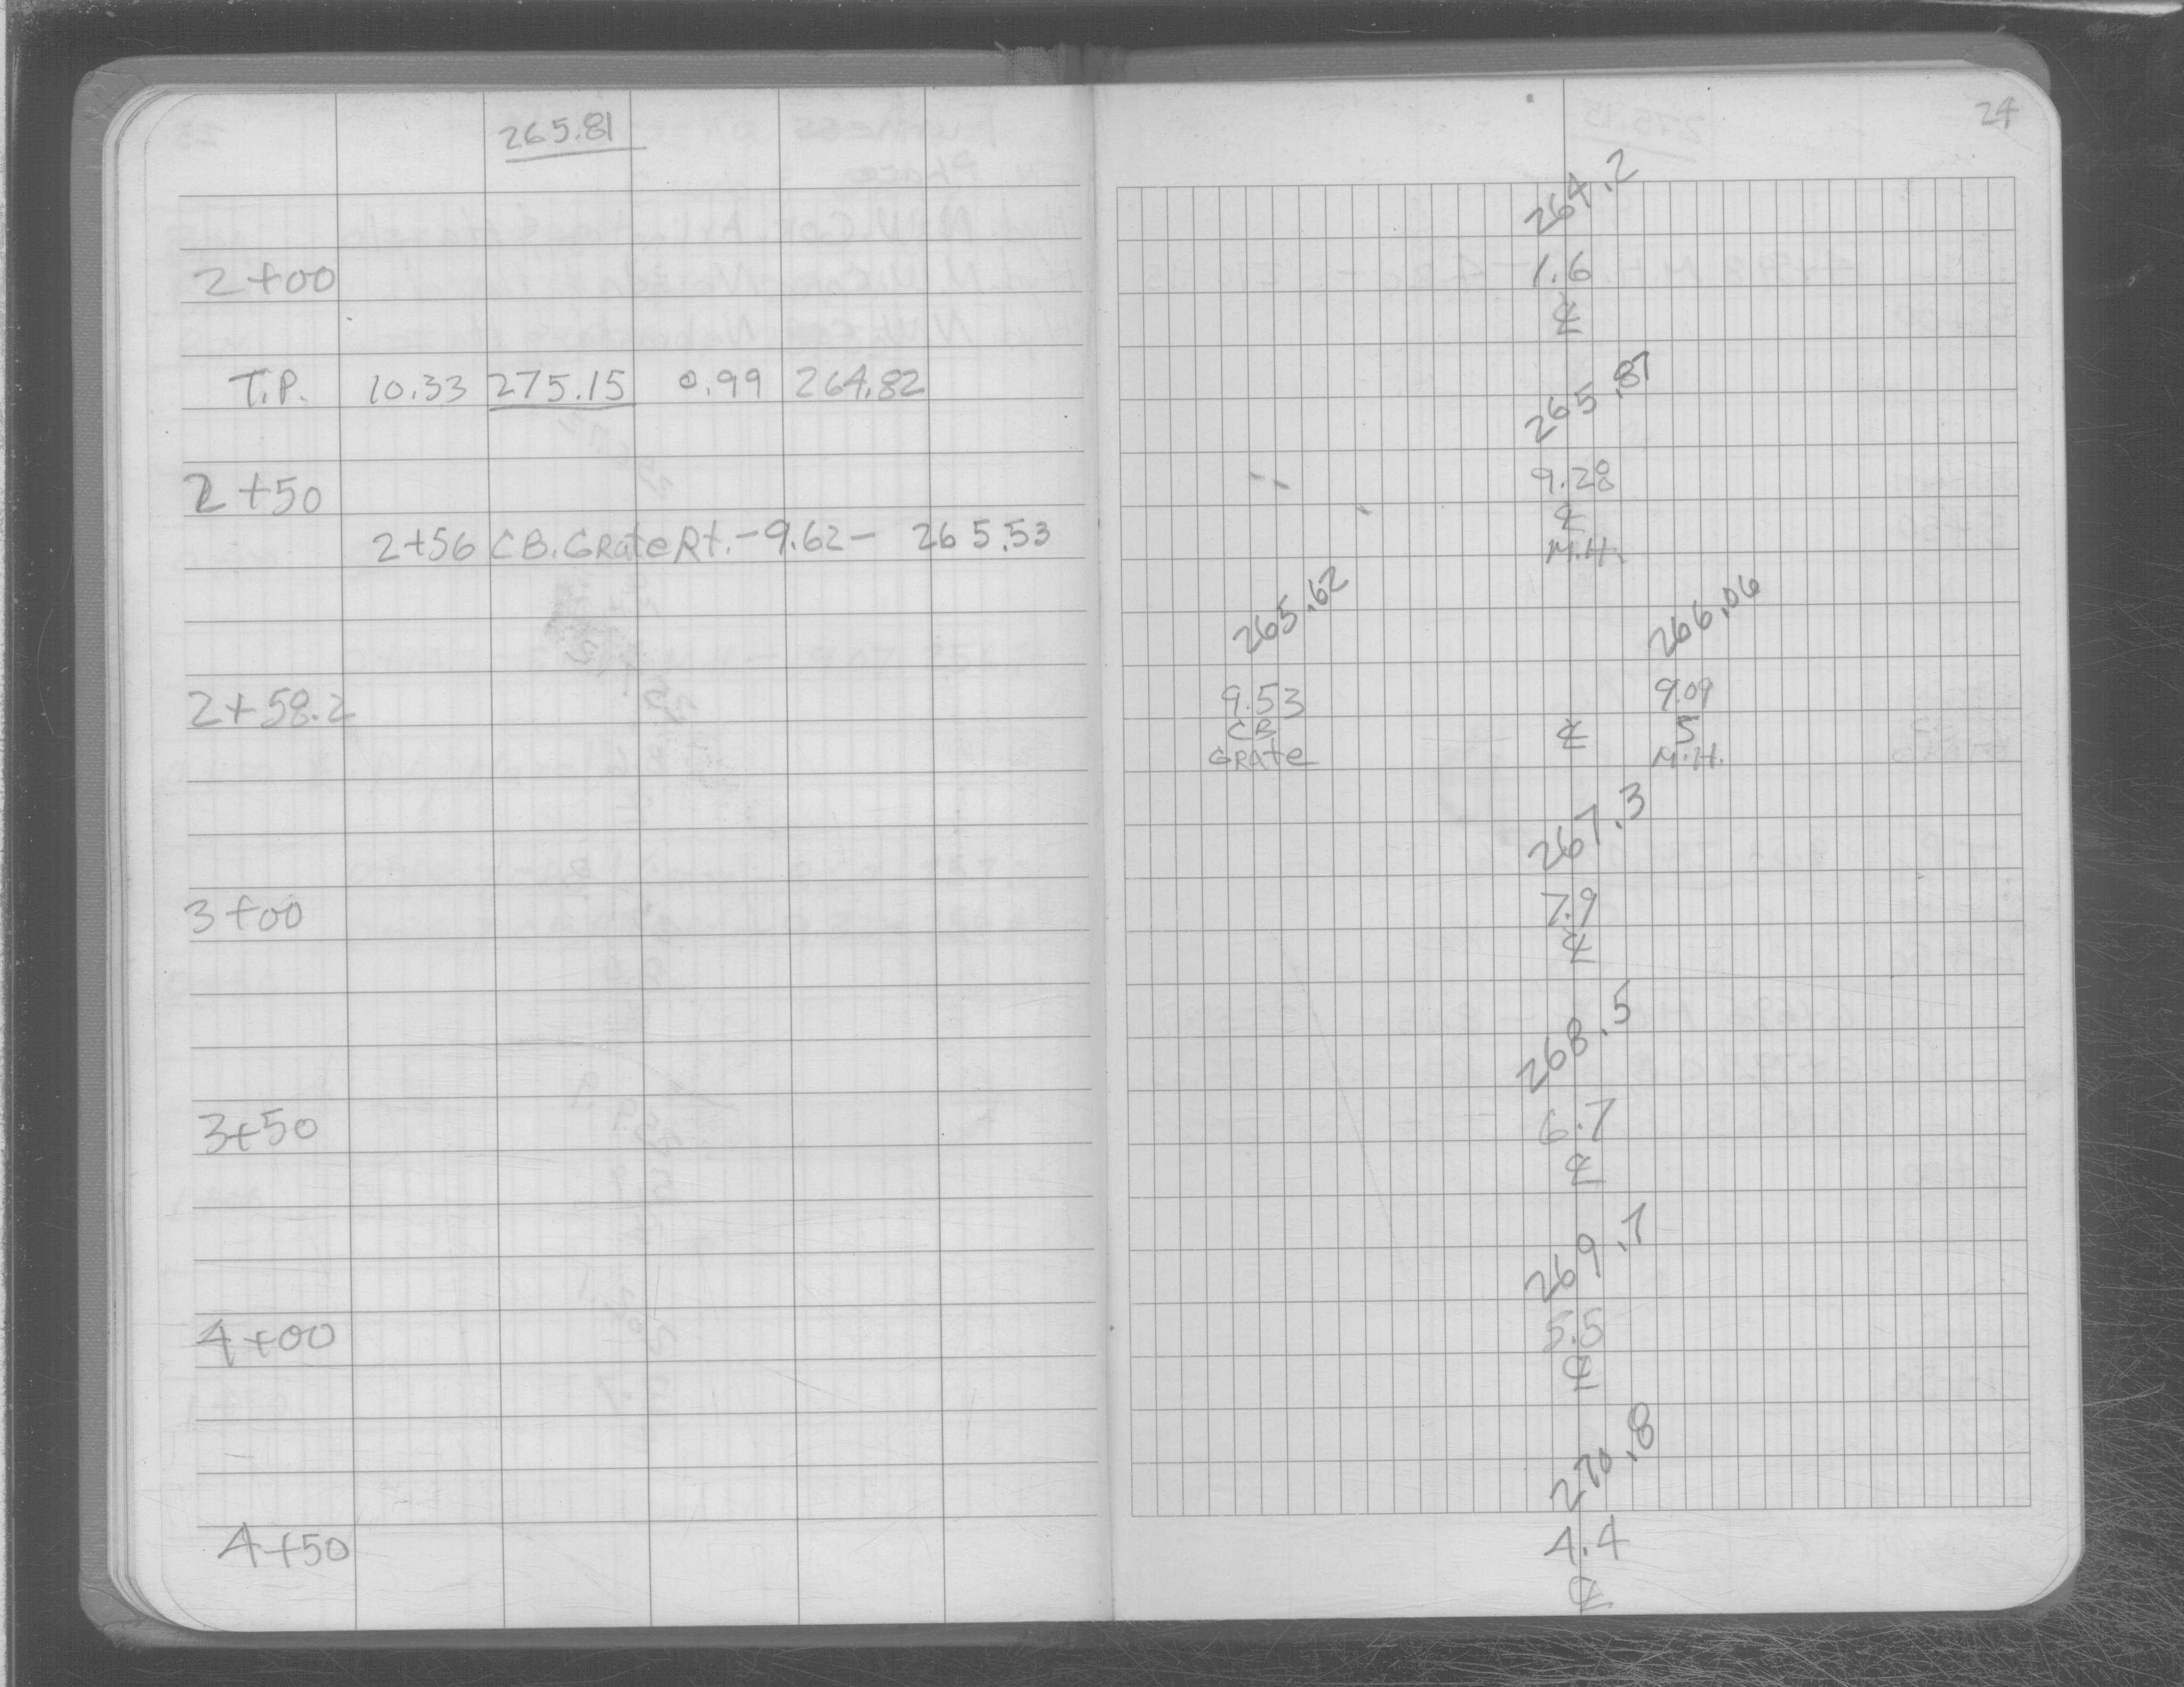 265.81
24
264.2
2+00
1.6
℄
T.P. 10.33 275.15 0.99 264.82
265.87
2+50
9.28
℄
M.H.
2+56 CB. GRate Rt. - 9.62 - 265.53
265.62
266.06
2+58.2
9.53
CB
GRAte
℄
9.09
5
M.H.
267.3
3+00
7.9
℄
268.5
3+50
6.7
℄
269.7
4+00
5.5
℄
270.8
4+50
4.4
℄